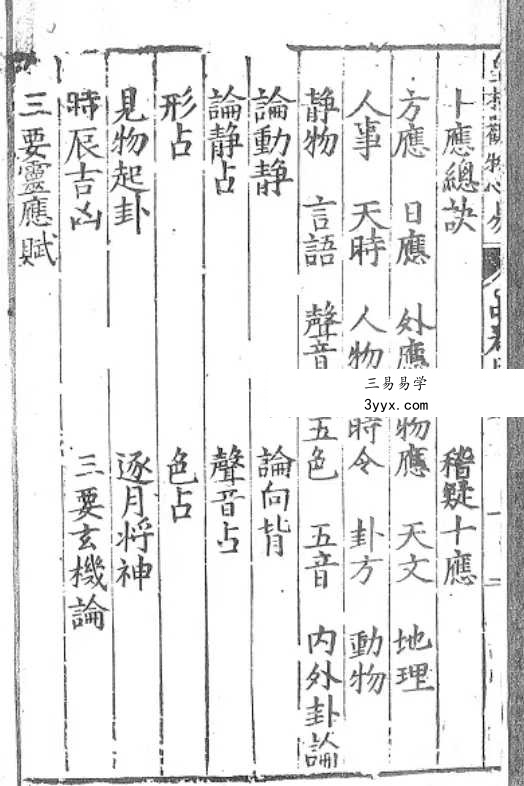 觀物 易
卜應總訣 稽疑十應
方應 日應 外應 物應 天文 地理
人事 天時 人物 時令 卦方 動物
静物 言語 聲音 五色 五音 内外卦論
論動静 論向背
論静占 聲音占
形占 色占
見物起卦 逐月将神
時辰吉凶 三要玄機論
三要靈應賦
三易易学
3yyx.com